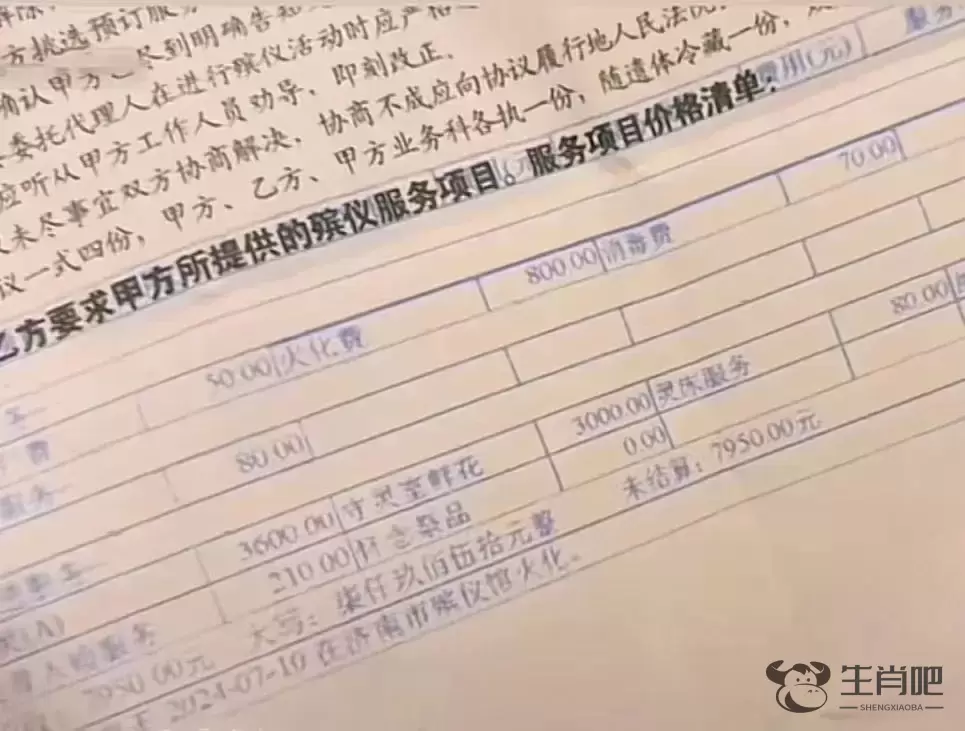 方挑选预订服务
确认甲方已尽到明确告知
委托代理人在进行殡仪活动时应严格
应听从甲方工作人员劝导，即刻改正。
未尽事宜双方协商解决，协商不成应向协议履行地人民法院
议一式四份，甲方、乙方、甲方业务科各执一份，随遗体冷藏一份，
乙方要求甲方所提供的殡仪服务项目。服务项目价格清单：
费用(元) 服务
50.00 火化费 800.00 消毒费 70.00
费
服务 80.00 80.00
3600.00 守灵堂鲜花 3000.00 灵床服务
(A) 210.00 怀念祭品 0.00
服务 大写：柒仟玖佰伍拾元整 未结算：7950.00元
7950.00元
2024-07-10 在济南市殡仪馆火化。
生肖吧
SHENGXIAOBA